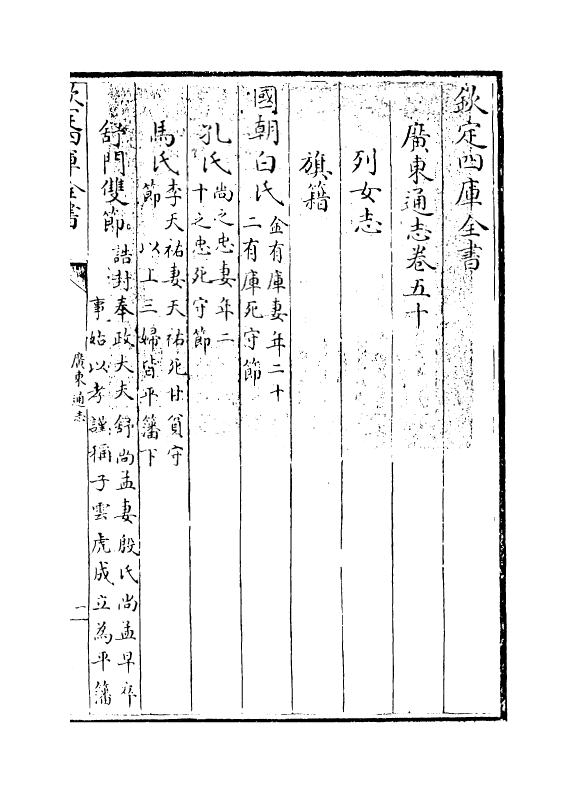 欽定四庫全書
廣東通志卷五十
列女志
旗籍
國朝白氏金有庫妻年二十
二有庫死守節
孔氏尚之忠妻年二
十之忠死守節
馬氏李天祐妻天祐死甘貧守
節以上三婦皆平藩下
舒門雙節誥封奉政大夫舒尚孟妻殷氏尚孟早卒
事姑以孝謹稱子雲虎成立為平藩
欽定四庫全書
廣東通志
一